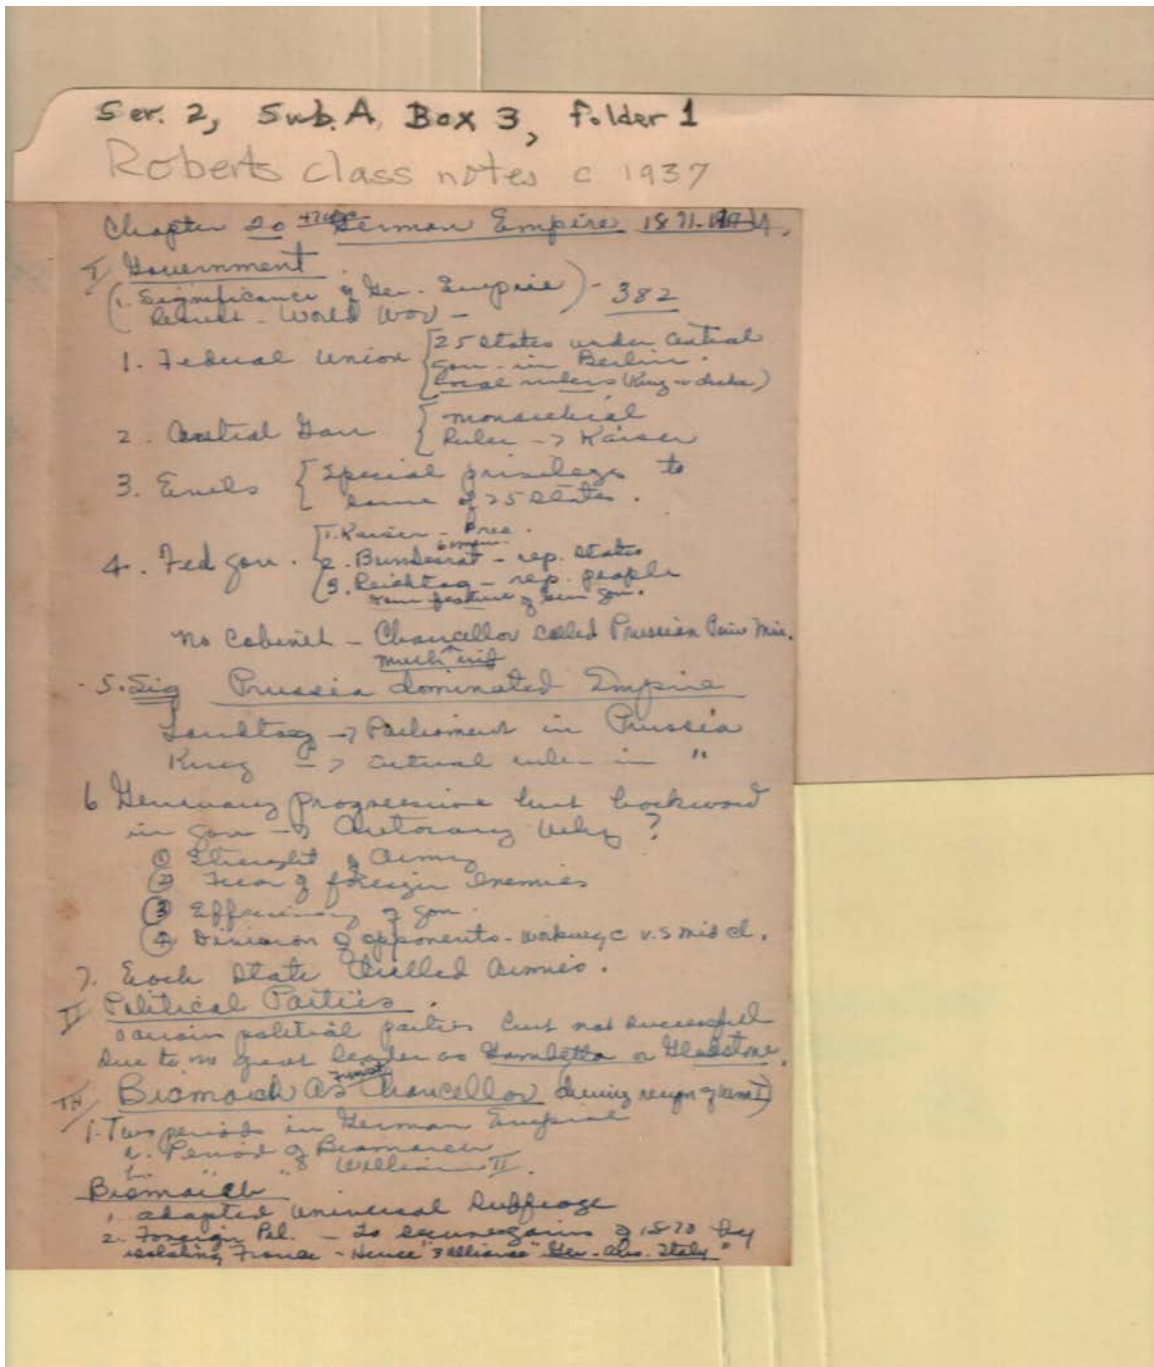 Ser. 2, Sub. A, Box 3, folder 1
Roberts class notes c 1937
Chapter 20 German Empire 1871-1914.
I Government
(1. Significance of Ger. Empire) - 382
Result - World War -
1. Federal Union {25 states under Central
gov. in Berlin.
local rulers (King or duke)
2. Central Gov {monarchial
Ruler -> Kaiser
3. Evils {Special privilege to
some of 25 states.
4. Fed gov. {1. Kaiser - Pres.
2. Bundesrat - rep. states
3. Reichtag - rep. people
dem feature of gov.
No Cabinet - Chancellor called Prussian Prim Min.
much inf
5. Sig Prussia dominated Empire
Landtag -> Parliament in Prussia
King -> actual ruler in "
6 Germany progressive but backward
in gov -> Autocracy Why?
① Strenght of Army
② Fear of foreign Enemies
③ Efficiency of gov.
④ Division of opponents - working c v.s mid cl.
7. Each State drilled armies.
II Political Parties.
various political parties but not successful
due to no great leader as Gambetta or Gladstone.
III Bismarck as First Chancellor during reign of Wm I)
1. Two periods in German Empire
a. Period of Bismarck
b. " " William II.
Bismarck
1. adapted Universal Suffrage
2. Foreign Pol. - to secure gains of 1870 by
isolating France - Hence "3 alliance" Ger. - Aus. Italy"